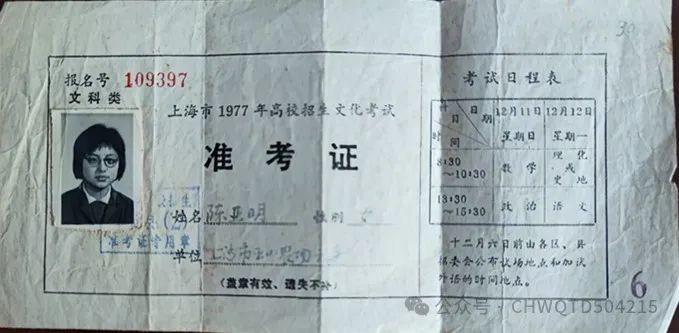 30
报名号 109397
文科类
上海市1977年高校招生文化考试
准考证
姓名 陈亚明 性别 女
单位 上海市
准考证专用章
(盖章有效、遗失不补)
考试日程表
科目 日期 时间 12月11日 星期日 12月12日 星期一
8:30～10:30 数学 理化或史地
13:30～15:30 政治 语文
十二月六日前由各区、县
招委会公布试场地点和加试
外语的时间地点。
6
公众号·CHWQTD504215